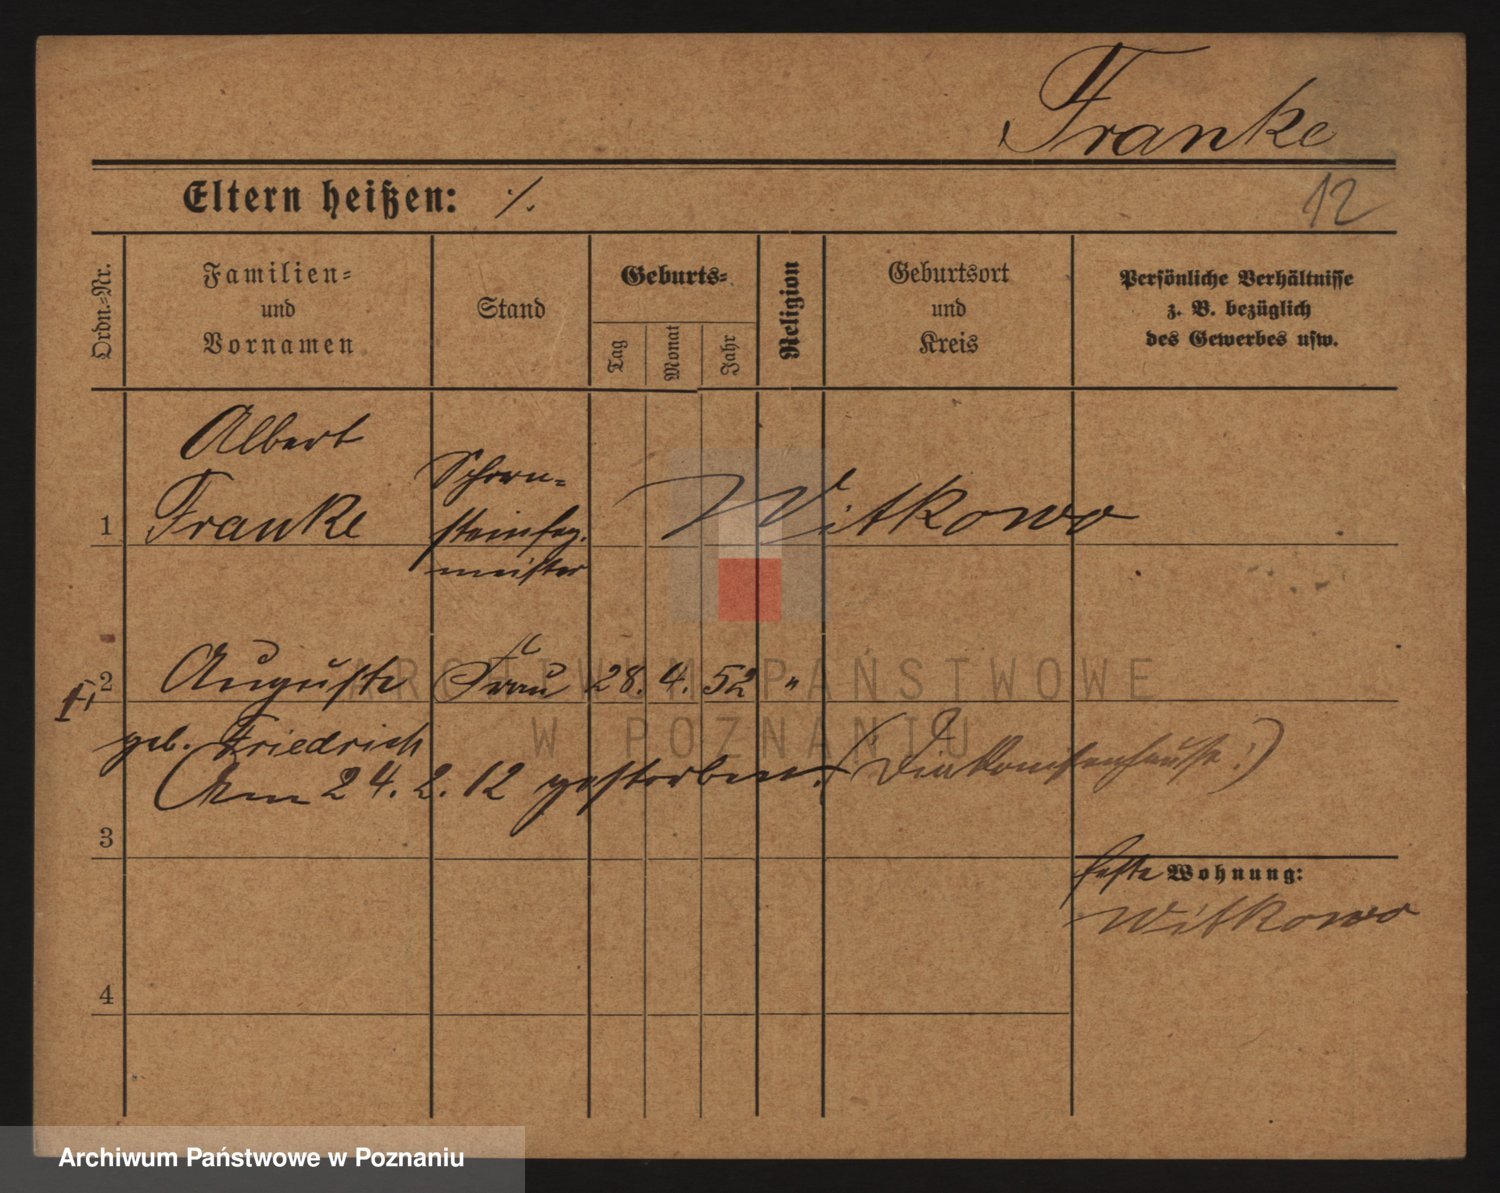 Franke
12
Eltern heißen: ./.
Ordn.-Nr.
Familien-
und
Vornamen
Stand
Geburts-
Tag
Monat
Jahr
Religion
Geburtsort
und
Kreis
Persönliche Verhältnisse
z. B. bezüglich
des Gewerbes usw.
Albert
Franke
Schorn-
steinfeg.
meister
Witkowo
1
2
Auguste Frau 28. 4. 52 "
geb. Friedrich
Am 24. 2. 12 gestorben. (Diakonissenhause!)
3
feste Wohnung:
Witkowo
4
ARCHIWUM PAŃSTWOWE
W POZNANIU
Archiwum Państwowe w Poznaniu